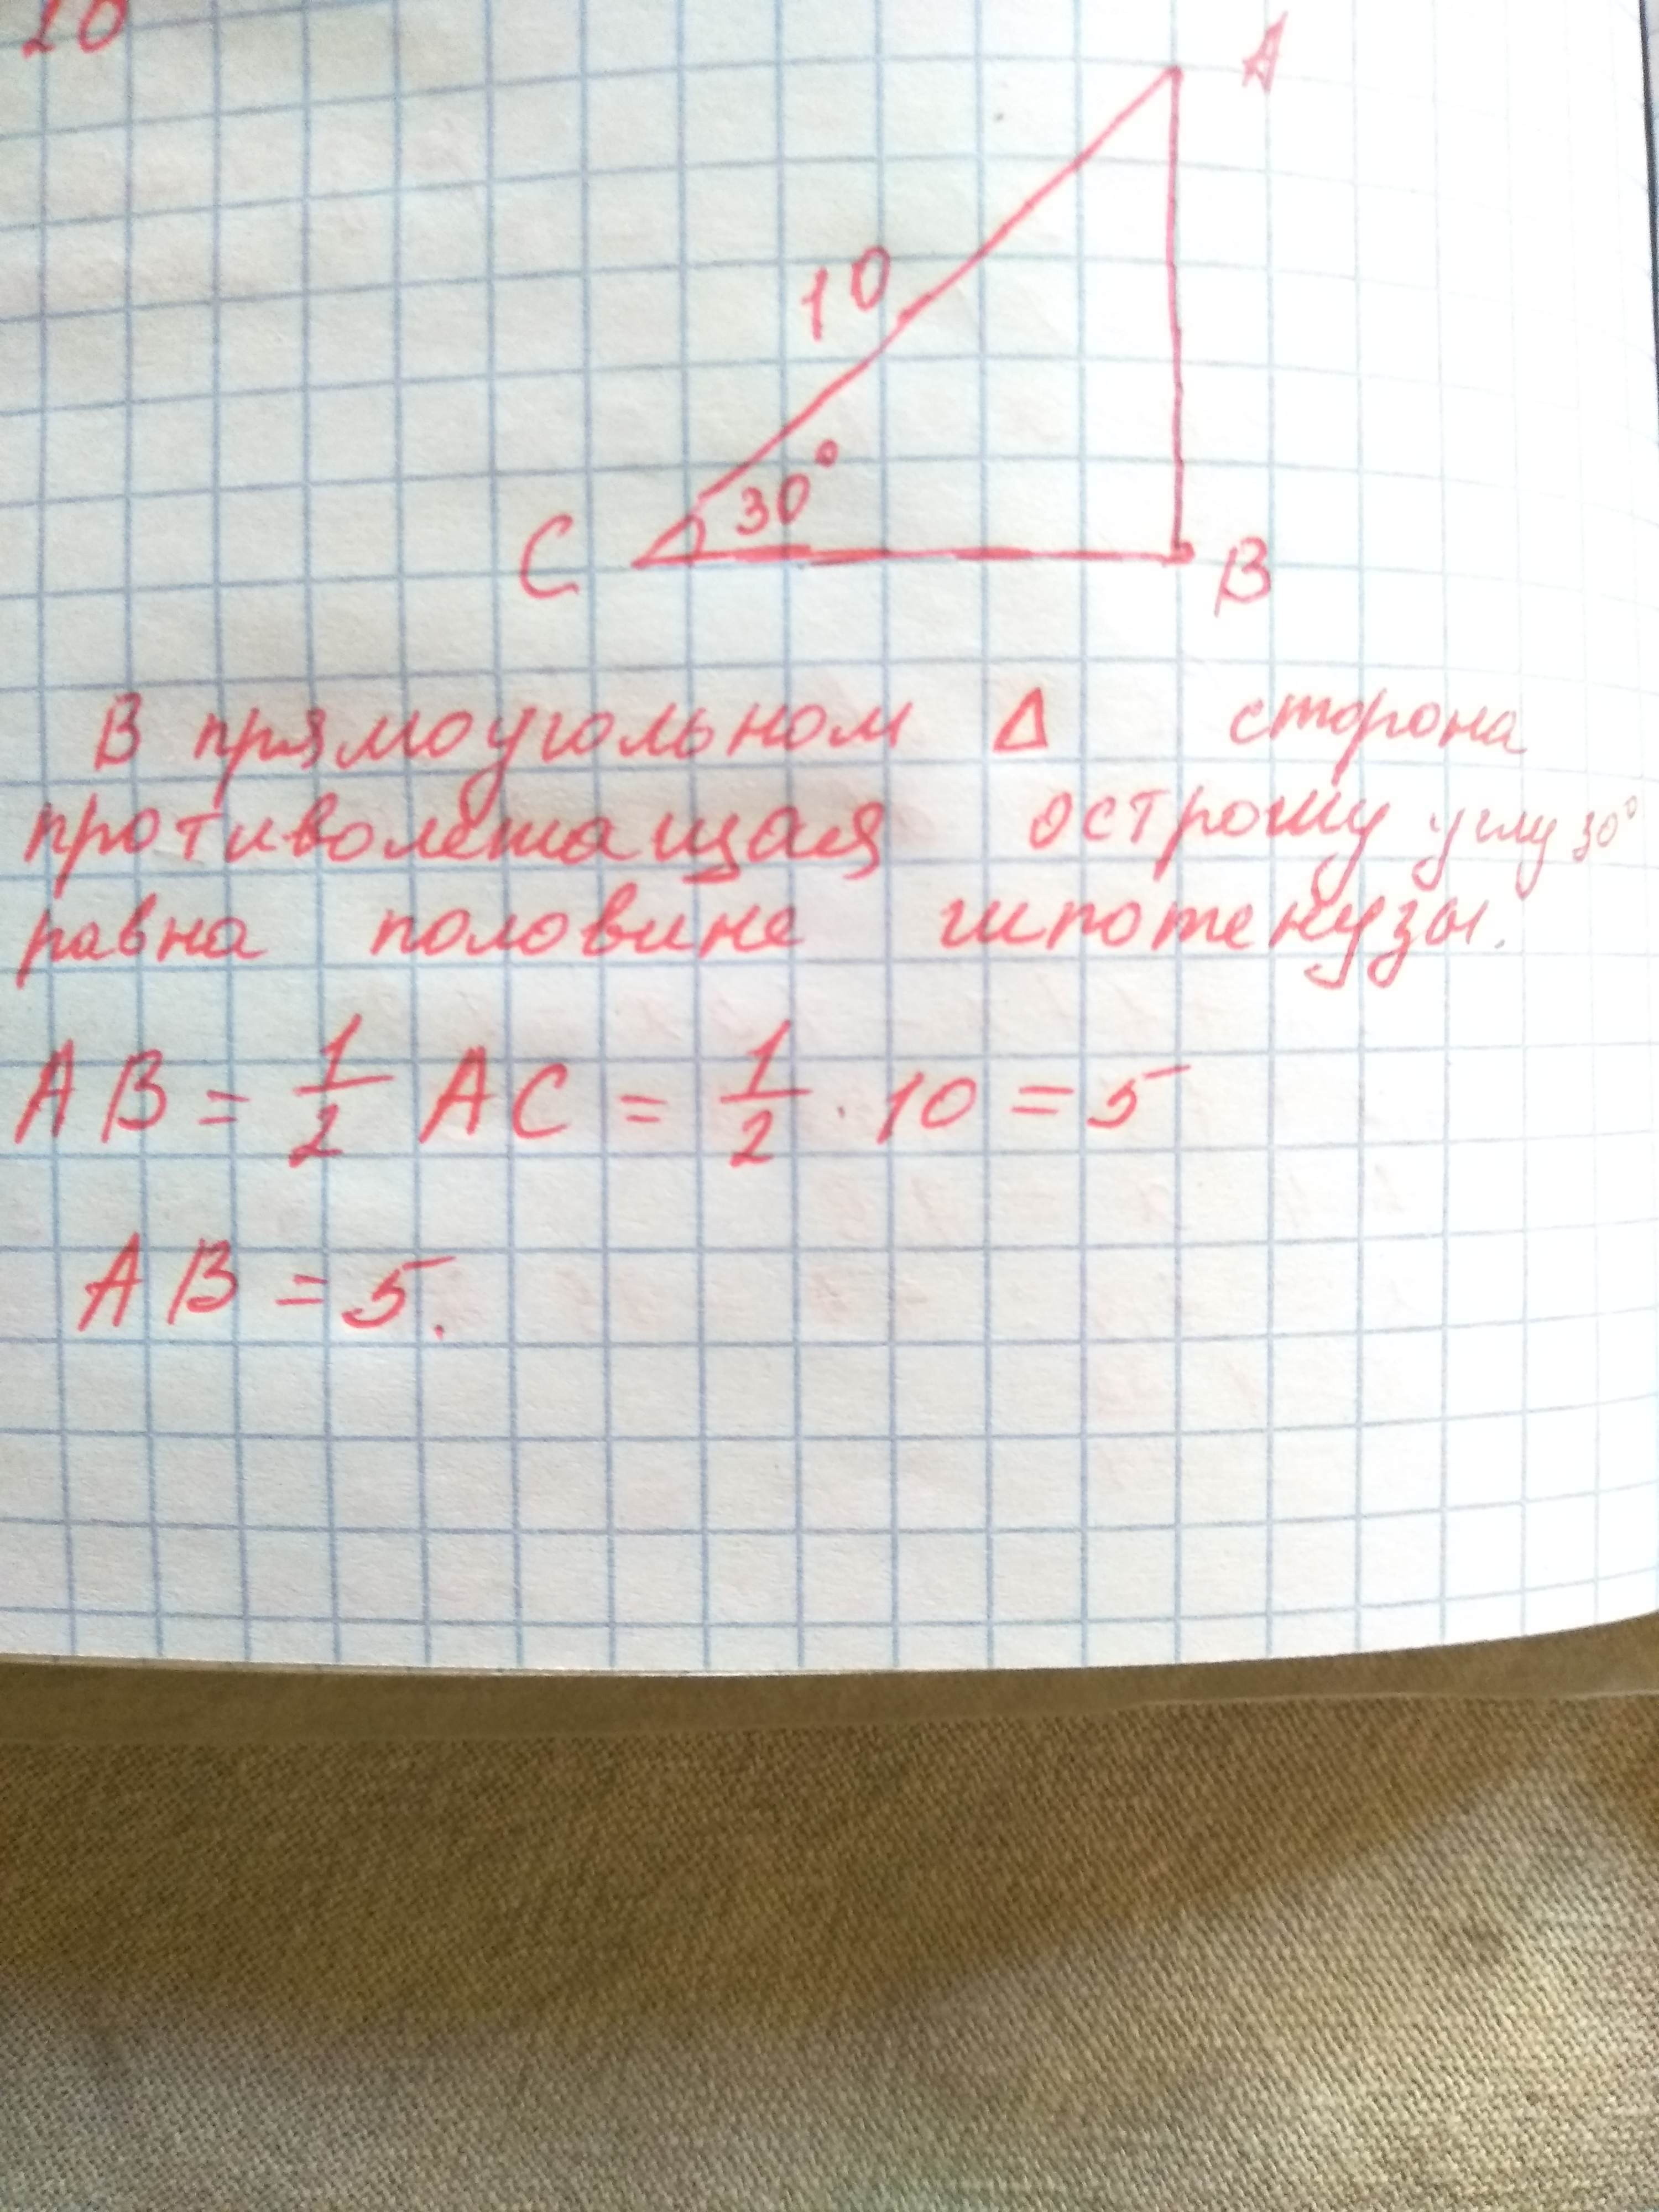 10
A
10
30°
C
B
В прямоугольном Δ сторона
противолежащая острому углу 30°
равна половине гипотенузы.
AB = 1/2 AC = 1/2 · 10 = 5
AB = 5.